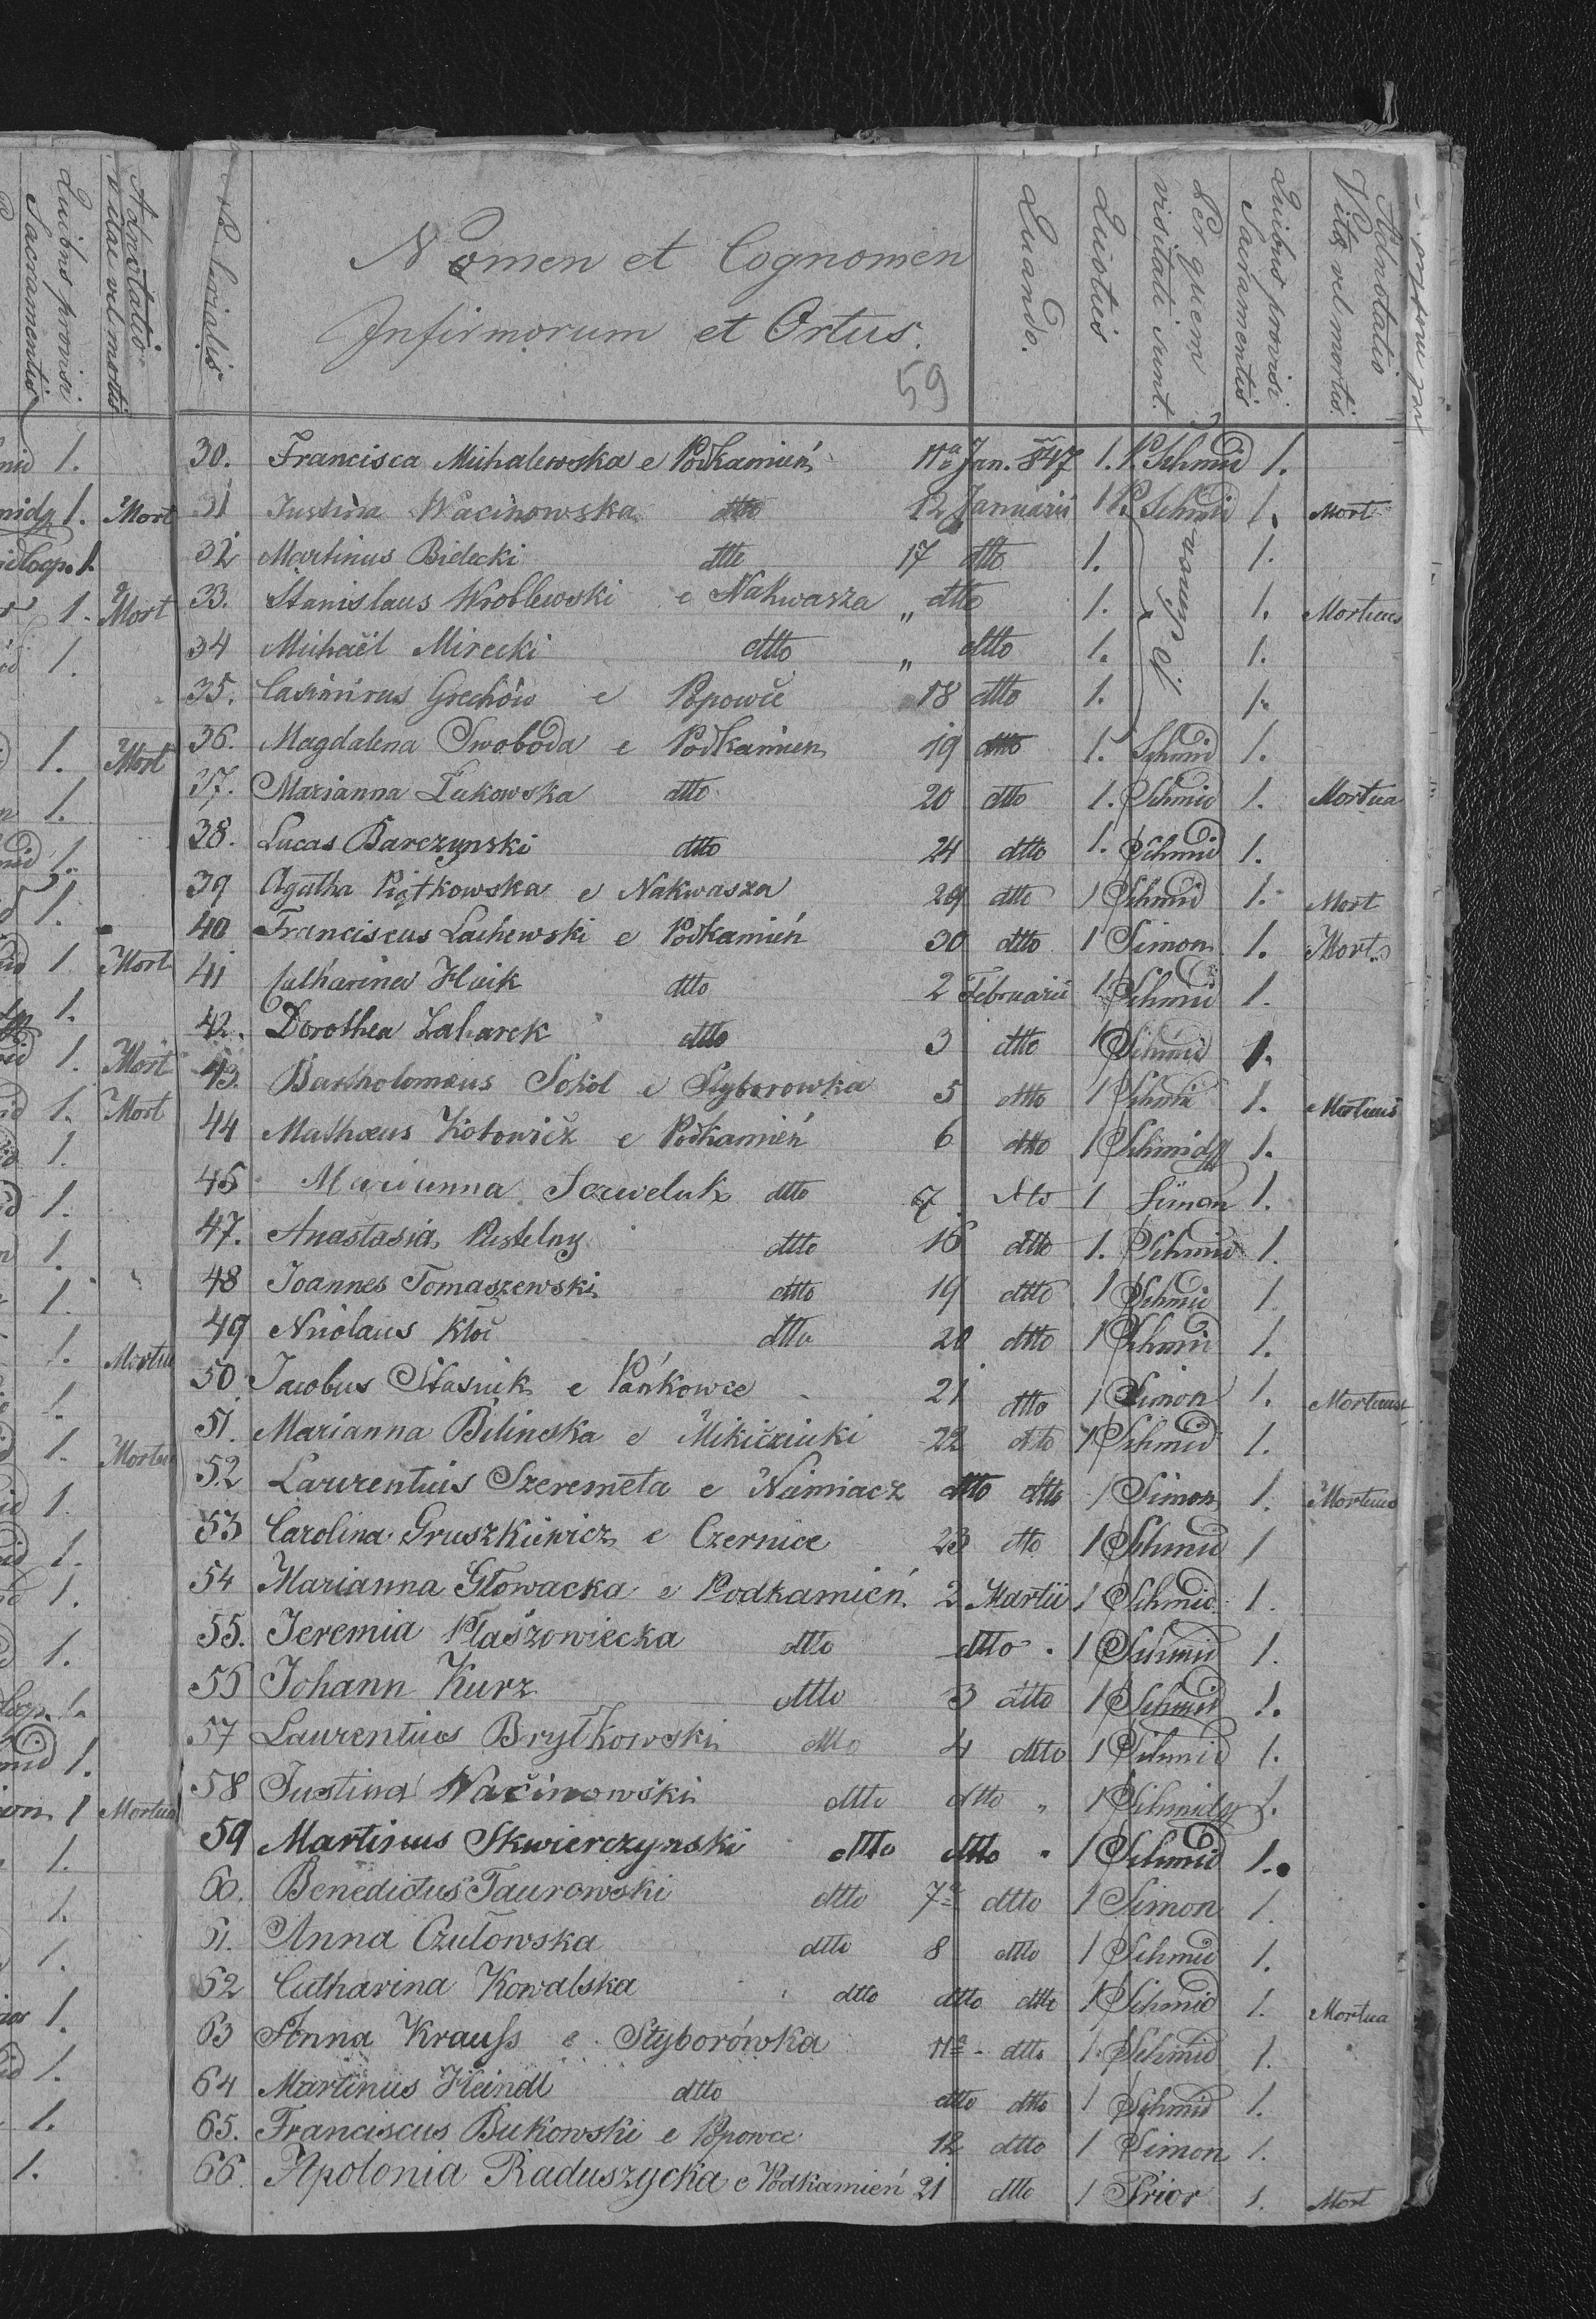 Adnotatio
vitae vel mortis
Quibus provisi
Sacramentis
Nomen et Cognomen
Infirmorum et Ortus.
Quando.
Quoties
Per quem
visitati sunt.
Quibus provisi
Sacramentis
Adnotatio
Vitæ vel mortis.
59
30. Francisca Michalewska e Podkamień 11a Jan. 847 1. P. Schmid 1.
31 Justina Wacinowska dtto 12 Januarii 1 P. Schmid 1. Mort
32 Martinus Bielecki dtto 17 dtto 1. 1.
33. Stanislaus Wroblewski e Nakwasza „ dtto 1. 1. Mortuus
34 Michaël Mirecki dtto „ dtto 1. 1.
35. Casimirus Grechów e Popowce 18 dtto 1. 1.
P. Simon
36. Magdalena Swoboda e Podkamien 19 dtto 1. Schmid 1.
37. Marianna Łukowska dtto 20 dtto 1. Schmid 1. Mortua
38. Lucas Barczynski dtto 24 dtto 1. Schmid 1.
39 Agatha Piątkowska e Nakwasza 29 dtto 1 Schmid 1. Mort
40 Franciscus Lachewski e Podkamień 30 dtto 1 Simon 1. Mort.
41 Catharina Huik dtto 2 Februarii 1. Schmid 1.
42. Dorothea dtto 3 dtto 1 Schmid 1.
43. Bartholomæus Sokol e Styborowka 5 dtto 1 Schmid 1. Mortuus
44 Mathæus Kotowicz e Podkamień 6 dtto 1 Schmid 1.
46 Marianna dtto 7 dtto 1 Simon 1.
47. Anastasia dtto 16 dtto 1. Schmid 1
48 Joannes Tomaszewski dtto 19 dtto 1 Schmid 1
49 Nicolaus Kloc dtto 20 dtto 1 Schmid 1.
50 Jacobus Stasiuk e Pańkowce 21 dtto 1 Simon 1. Mortuus
51. Marianna Bilinska e 22 dtto 1 Schmid 1.
52 Laurentius Szeremeta e dtto dtto 1 Simon 1. Mortuus
53 Carolina Gruszkiewicz e Czernice 23 dtto 1 Schmid 1
54 Marianna Głowacka e Podkamień 2 Martii 1 Schmid 1.
55. Jeremia Płaszowiecka dtto dtto . 1 Schmid 1.
56 Johann Kurz dtto 3 dtto 1 Schmid 1.
57 Laurentius Brytkowski dtto 4 dtto 1 Schmid 1.
58 Justina Wacinowski dtto dtto „ 1 Schmid 1.
59 Martinus Skwierczynski dtto dtto „ 1 Schmid 1.
60. Benedictus Taurowski dtto 7a dtto 1 Simon 1.
61. Anna Czułowska dtto 8 dtto 1 Schmid 1.
62 Catharina Kowalska dtto dtto dtto 1 Schmid 1. Mortua
63 Anna Krauss e Styborówka 11a dtto 1. Schmid 1.
64 Martinus Heindl dtto dtto dtto 1 Schmid 1.
65. Franciscus Bukowski e Popowce 12 dtto 1 Simon 1.
66. Apolonia Raduszycka e Podkamień 21 dtto 1 Prior 1. Mort